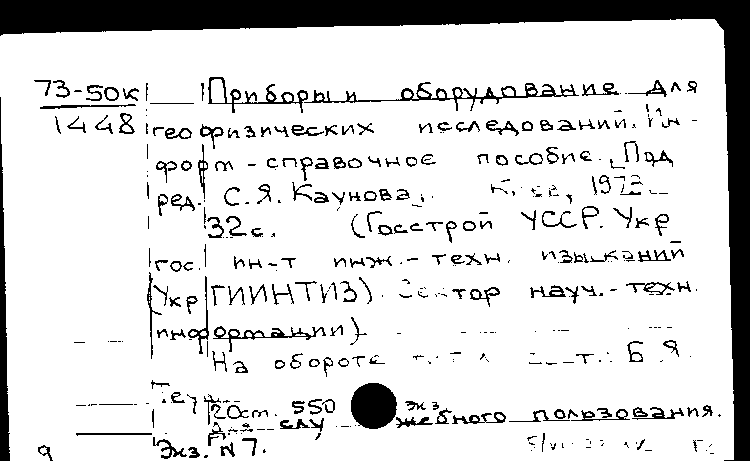 73-50к Приборы и оборудование для
1448 геофизических исследований. Ин-
форм-справочное пособие. Под
ред. С.Я. Каунова. Киев, 1973.
32с. (Госстрой УССР. Укр
гос. ин-т инж.-техн. изысканий
(УкрГИИНТИЗ). Сектор науч.-техн.
информации)
На обороте Б.Я.
20 ст. 550 экз
Для служебного пользования.
Экз. N 7.